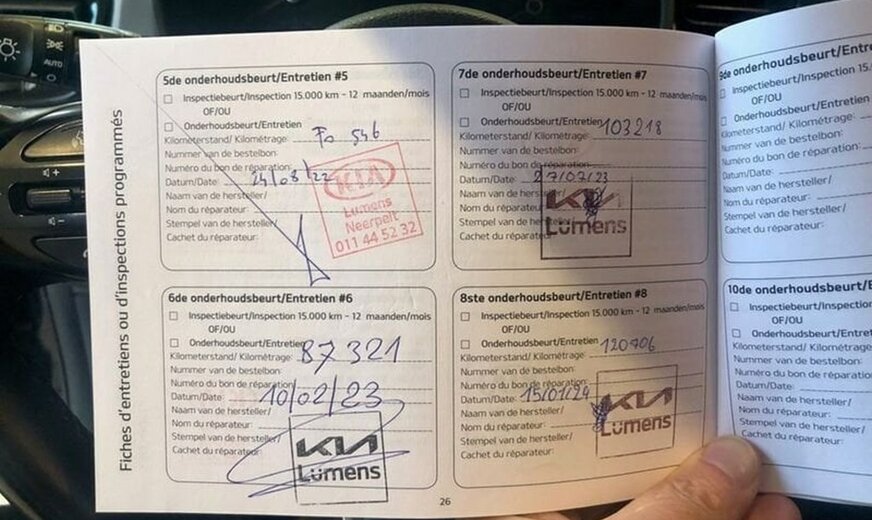 Fiches d'entretiens ou d'inspections programmés
5de onderhoudsbeurt/Entretien #5
Inspectiebeurt/Inspection 15.000 km - 12 maanden/mois
OF/OU
Onderhoudsbeurt/Entretien
Kilometerstand/ Kilométrage: 546
Nummer van de bestelbon:
Numéro du bon de réparation:
Datum/Date: 24/08/22
Naam van de hersteller/
Nom du réparateur:
Stempel van de hersteller/
Cachet du réparateur:
KIA
Lümens
Neerpelt
011 44 52 32
6de onderhoudsbeurt/Entretien #6
Inspectiebeurt/Inspection 15.000 km - 12 maanden/mois
OF/OU
Onderhoudsbeurt/Entretien
Kilometerstand/ Kilométrage: 87321
Nummer van de bestelbon:
Numéro du bon de réparation:
Datum/Date: 10/02/23
Naam van de hersteller/
Nom du réparateur:
Stempel van de hersteller/
Cachet du réparateur:
KIA
Lümens
7de onderhoudsbeurt/Entretien #7
Inspectiebeurt/Inspection 15.000 km - 12 maanden/mois
OF/OU
Onderhoudsbeurt/Entretien
Kilometerstand/ Kilométrage: 103218
Nummer van de bestelbon:
Numéro du bon de réparation:
Datum/Date: 27/07/23
Naam van de hersteller/
Nom du réparateur:
Stempel van de hersteller/
Cachet du réparateur:
KIA
Lümens
8ste onderhoudsbeurt/Entretien #8
Inspectiebeurt/Inspection 15.000 km - 12 maanden/mois
OF/OU
Onderhoudsbeurt/Entretien
Kilometerstand/ Kilométrage: 120706
Nummer van de bestelbon:
Numéro du bon de réparation:
Datum/Date: 15/01/24
Naam van de hersteller/
Nom du réparateur:
Stempel van de hersteller/
Cachet du réparateur:
KIA
Lümens
26
9de onderhoudsbeurt/Entre
Inspectiebeurt/Inspection 15.0
OF/OU
Onderhoudsbeurt/Entretien
Kilometerstand/ Kilométrage:
Nummer van de bestelbon:
Numéro du bon de réparation:
Datum/Date:
Naam van de hersteller/
Nom du réparateur:
Stempel van de hersteller/
Cachet du réparateur:
10de onderhoudsbeurt/Entr
Inspectiebeurt/Inspection
OF/OU
Onderhoudsbeurt/Entret
Kilometerstand/ Kilométrage:
Nummer van de bestelbon:
Numéro du bon de réparation:
Datum/Date:
Naam van de hersteller/
Nom du réparateur:
Stempel van de hersteller/
Cachet du réparateur:
AUTO